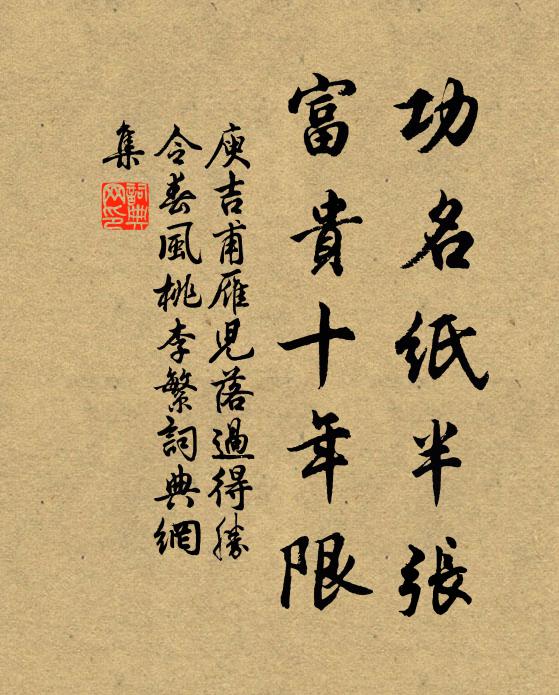 功名紙半張
富貴十年限
庾吉甫雁児落過得勝
令春風桃李繁詞典網
集
詞典
网印